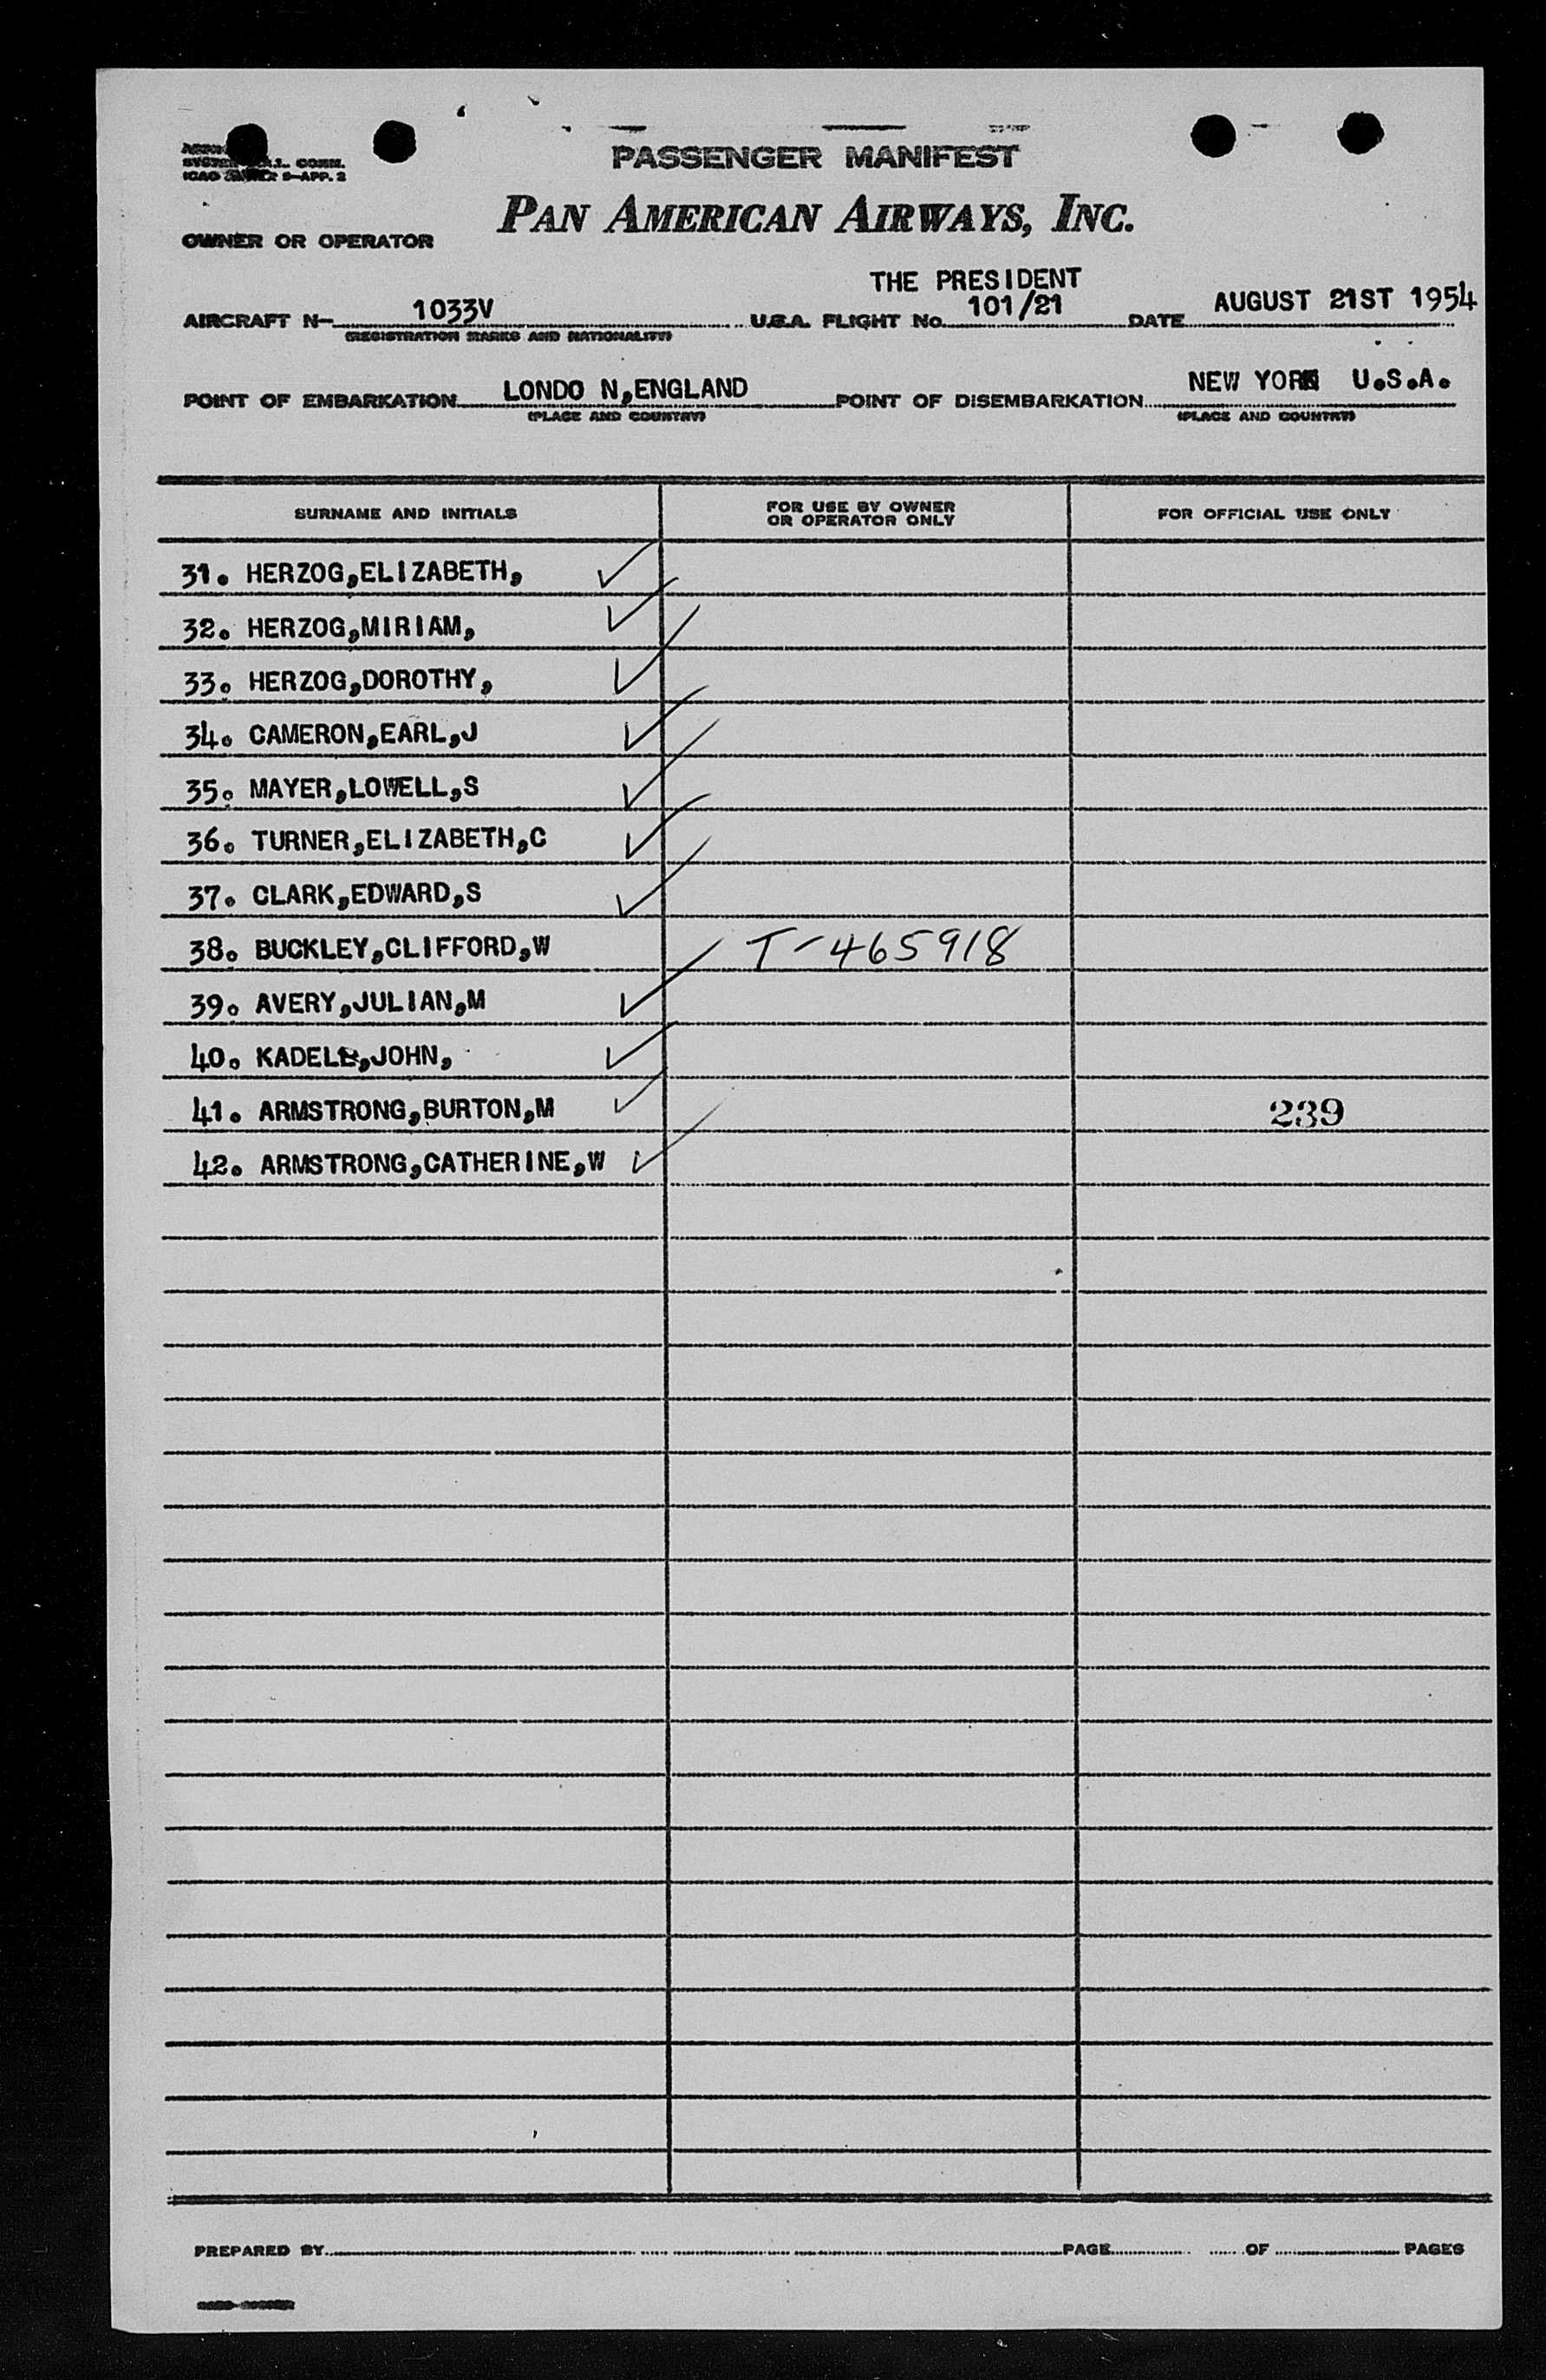 PASSENGER MANIFEST
SYSTEM COMM.
ICAO ANNEX 9-APP. 2
PAN AMERICAN AIRWAYS, INC.
OWNER OR OPERATOR
THE PRESIDENT
AIRCRAFT N- 1033V U.S.A. FLIGHT No. 101/21 DATE AUGUST 21ST 1954
(REGISTRATION MARKS AND NATIONALITY)
POINT OF EMBARKATION LONDO N,ENGLAND POINT OF DISEMBARKATION NEW YORK U.S.A.
(PLACE AND COUNTRY) (PLACE AND COUNTRY)
SURNAME AND INITIALS FOR USE BY OWNER OR OPERATOR ONLY FOR OFFICIAL USE ONLY
31. HERZOG,ELIZABETH,
32. HERZOG,MIRIAM,
33. HERZOG,DOROTHY,
34. CAMERON,EARL,J
35. MAYER,LOWELL,S
36. TURNER,ELIZABETH,C
37. CLARK,EDWARD,S
38. BUCKLEY,CLIFFORD,W T-465918
39. AVERY,JULIAN,M
40. KADELL,JOHN,
41. ARMSTRONG,BURTON,M 239
42. ARMSTRONG,CATHERINE,W
PREPARED BY PAGE OF PAGES